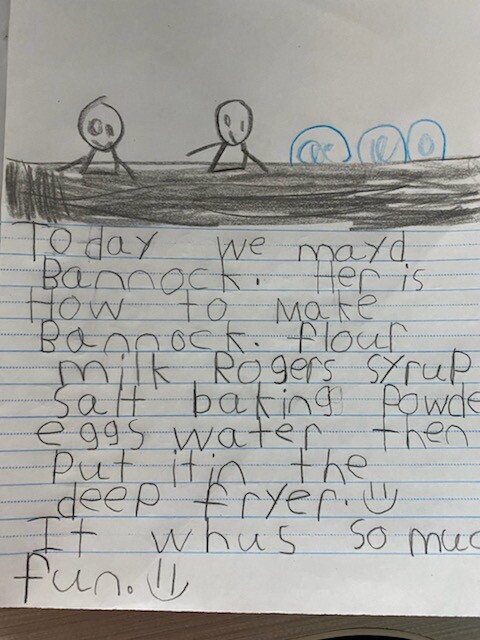 Today we mayd
Bannock. Her is
How to make
Bannock. flour
milk Rogers syrup
Salt baking Powde
eggs water then
Put it in the
deep fryer.
It whus so muc
fun.